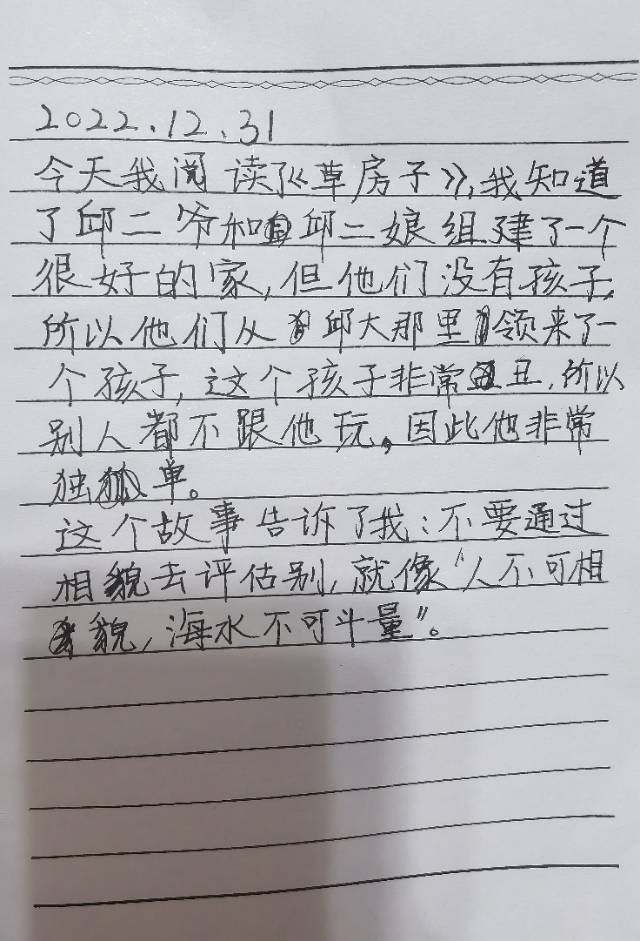 2022.12.31
今天我阅读了《草房子》,我知道
了邱二爷和邱二娘组建了一个
很好的家,但他们没有孩子,
所以他们从邱大那里领来了一
个孩子,这个孩子非常丑,所以
别人都不跟他玩,因此他非常
独单。
这个故事告诉了我:不要通过
相貌去评估别,就像“人不可相
貌,海水不可斗量”。